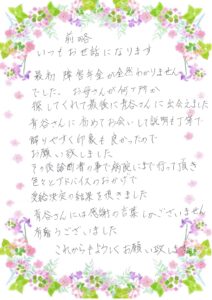 前略
いつもお世話になります
最初 障害年金が全然わかりません
でした。お母さんが何ヶ所か
探してくれて最後に青谷さんに出会えました
青谷さんに初めてお会いして説明も丁寧で
解りやすく印象も良かったので
お願い致しました。
その後診断書の事で病院にまで行って頂き
色々とアドバイスのおかげで
受給決定の結果を頂きました
青谷さんには感謝の言葉しかございません
有難うございました
これからもよろしくお願い致します